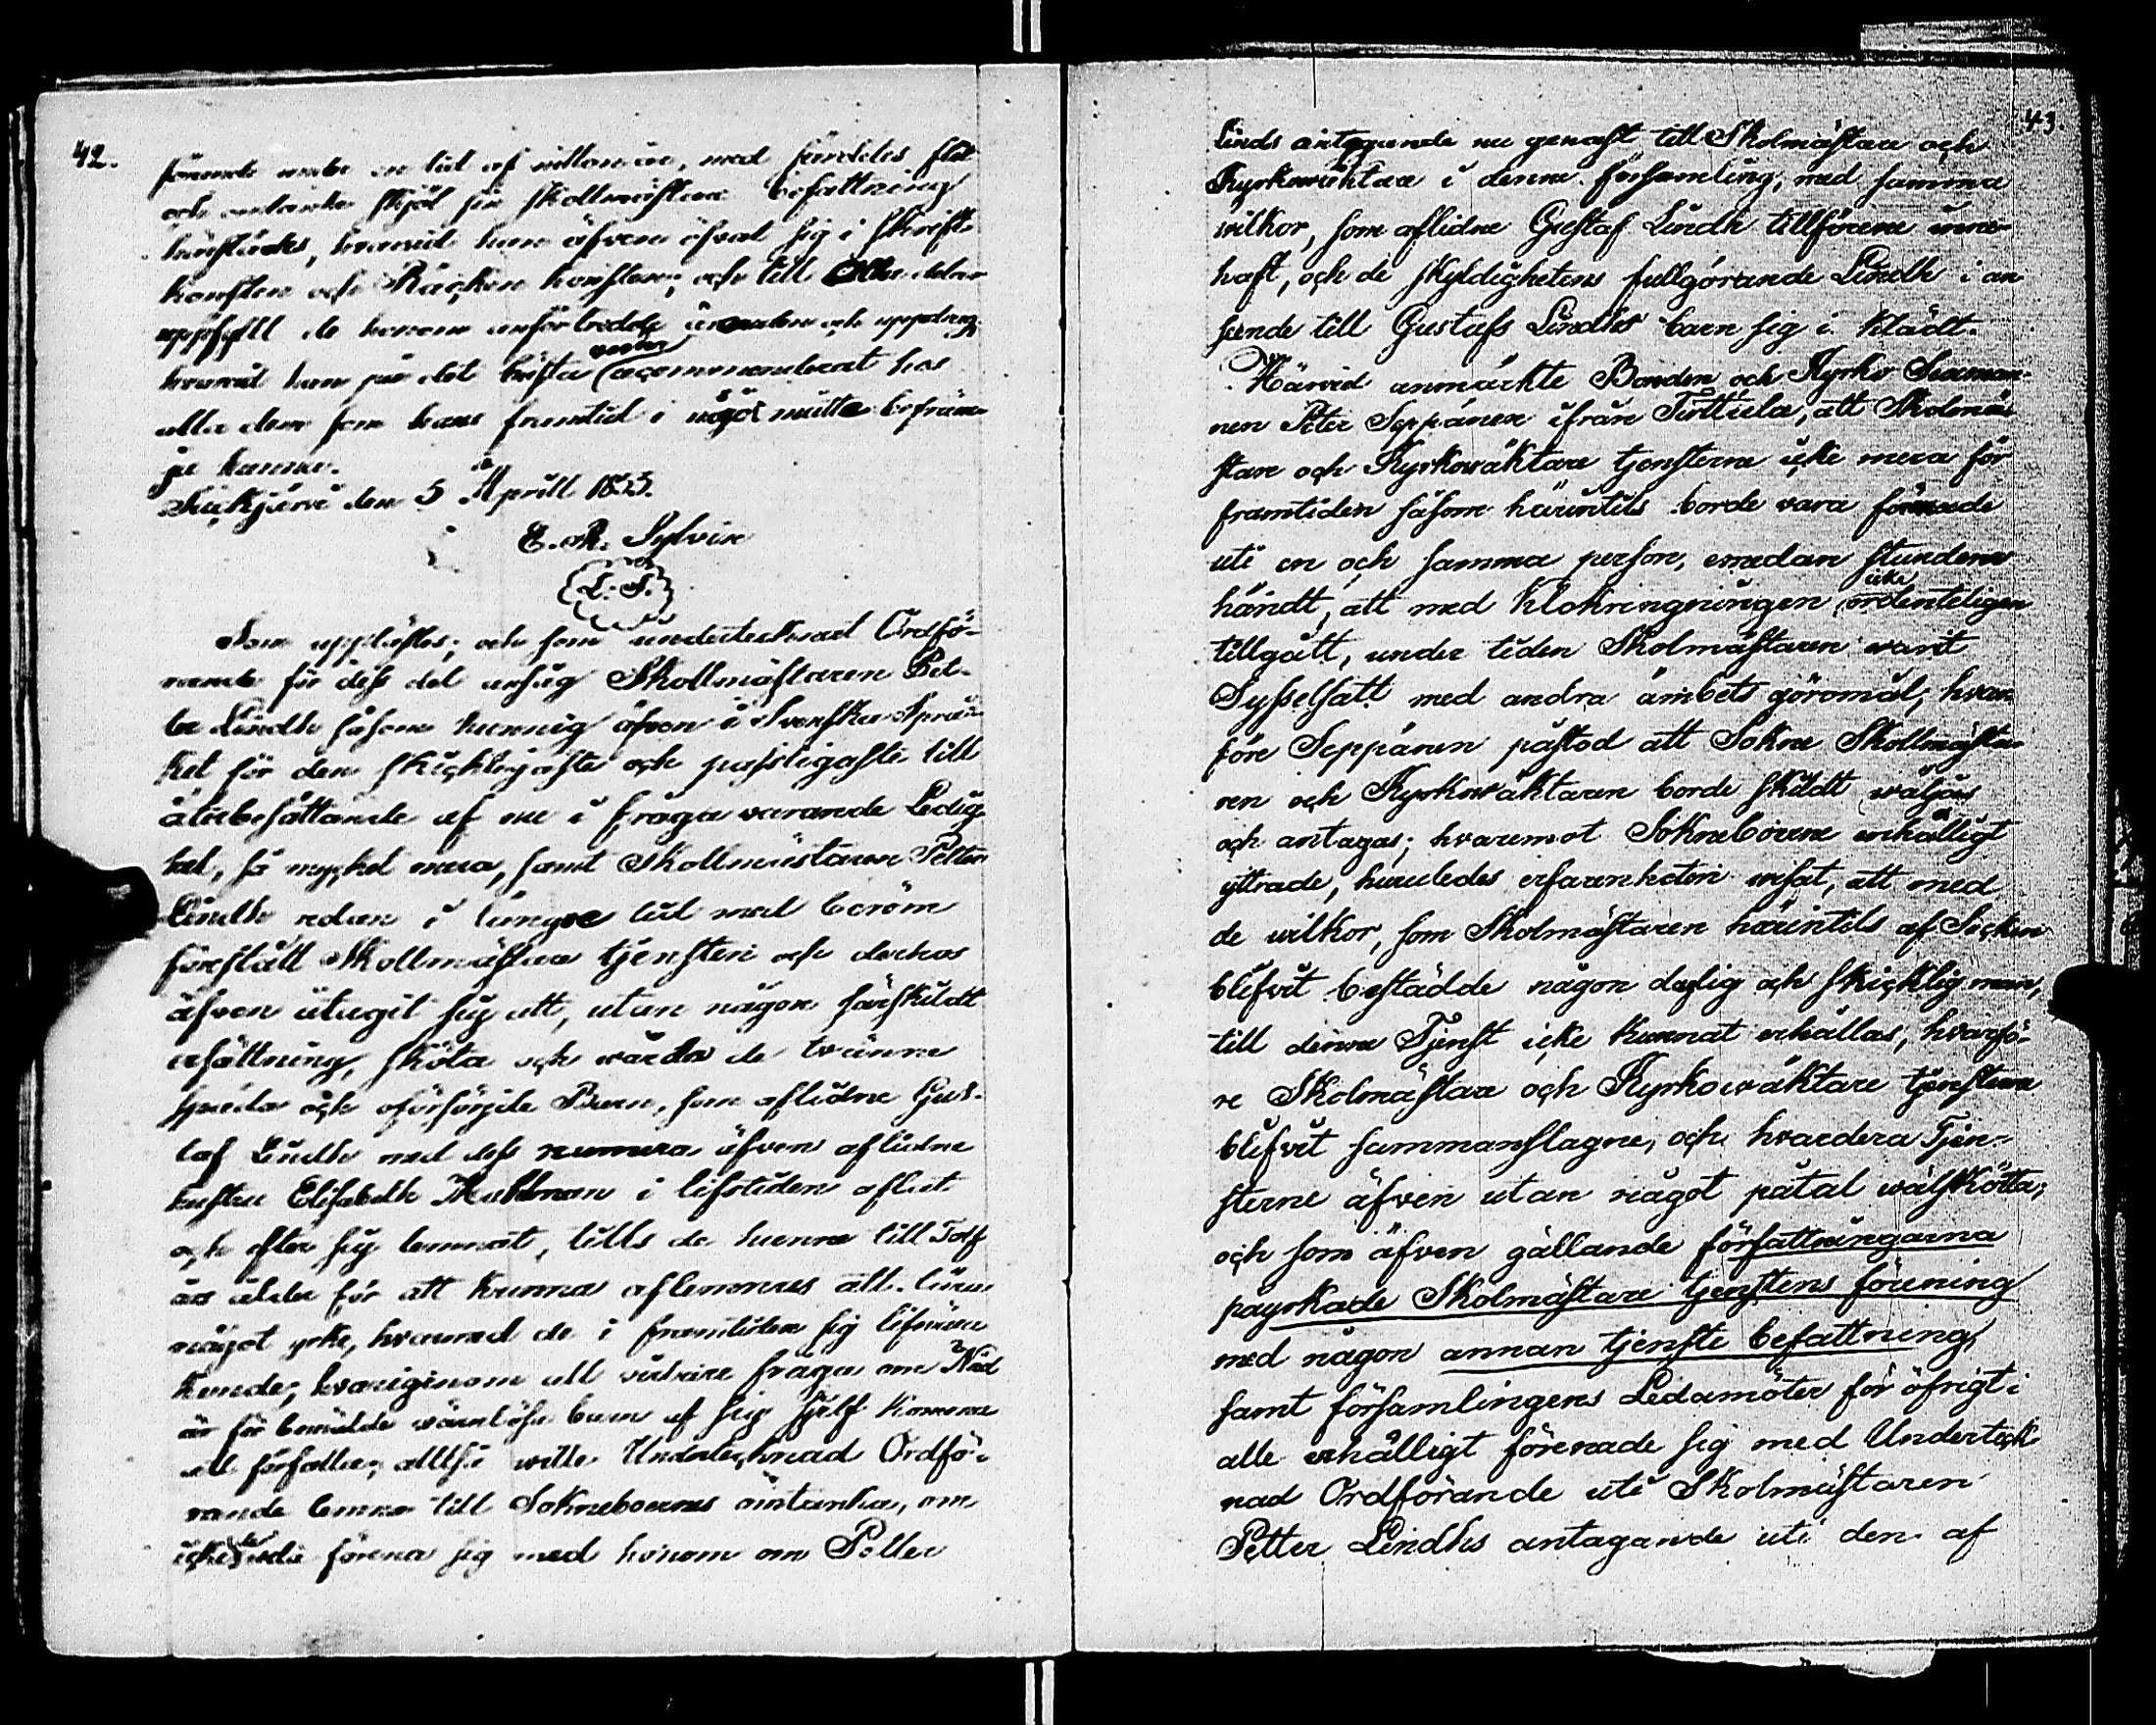 42.
förande under en tid af nitton år, med synnerlig flit
och omtanke skjöt sin skollmästare befattning
härstädes, hvarvid han äfven öfvat sig i skrift
konsten och Räcken konsten; och till alla delar
uppfyll de honom anförtrodde ärenden och uppdrag,
hvarvid han på det bästa recommenderat hos
alla dem som hans framtid i någor måtto befräm-
ja kunna.
Säckjärvi den 5 April 1853.
E. A. Sylvin
L. S.
Som upplästes; och som undertecknad Ordfö-
rande för dess del ansåg Skollmästaren Pet-
ter Lindh såsom kunnig äfven i Svenska Språ-
ket för den skickligaste och passligaste till
återbesättande af nu i fråga varande Ledig-
het, så mycket mera, samt Skollmästaren Petter
Lindh redan i längre tid med beröm
förestått Skollmästare tjensten och derhos
äfven åtagit sig att, utan någon särskildt
ersättning, sköta och vårda de tvänne
späda och oförsörjde Barn, som aflidne Gus-
taf Lindh med dess numera äfven aflidne
hustru Elisabeth Thalman i lifstiden aflat
och efter sig lemnat, tills de hunne till Tolf
års ålder för att kunna aflemnas att lära
något yrke, hvarmed de i framtiden sig lifnära
kunde; hvarigenom all vidare fråga om Nåd
år för bemälde värnlösa barn af sig sjelf komme
att förfalla; alltså ville Undertecknad Ordfö-
rande lemna till Sokneboernes omtanka, om
icke de förena sig med honom om Petter
43.
Linds antagande nu genast till Skolmästare och
Kyrkowäktare i denna församling, med samma
wilkor, som aflidne Gustaf Lindh tillförene inne-
haft, och de skyldighetens fullgörande Lindh i an
seende till Gustafs Lindhs barn sig i klädt.
Härvid anmärkte Bonden och Kyrko Sexman-
nen Peter Seppänen ifrån Turttiela, att Skolmäs-
stare och Kyrkowäktare tjensterne icke mera för
framtiden såsom härintils borde vara förenade
uti en och samma person, emedan stundom
händt, att med klokringningen icke ordenteligen
tillgått, under tiden Skolmästaren warit
Sysselsatt med andra ämbets göromål, hvar-
före Seppänen påstod att Sokne Skollmästa-
ren och Kyrkowäktaren borde skildt wäljas
och antagas; hvaremot Sokneboerne enhälligt
yttrade, huruledes erfarenheten wisat, att med
de wilkor, som Skolmästaren härintils af Socken
blifvit bestådde någon duglig och skicklig man,
till denna Tjenst icke kunnat erhållas, hvarfö-
re Skolmästare och Kyrkowäktare tjensterne
blifvit sammanslagne, och hvardera Tjen-
sterne äfven utan något påtal wälskötta;
och som äfven gällande författningarna
payrkade Skolmästare tjenstens förening
med någon annan tjenste befattning,
samt församlingens Ledamöter för öfrigt i
alle enhälligt förenade sig med Underteck-
nad Ordförande uti Skolmästaren
Petter Lindhs antagande uti den af